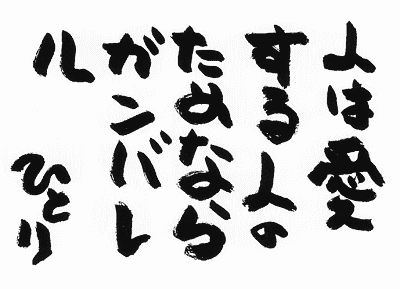 人は愛
する人の
ためなら
ガンバレ
ル
ひとり